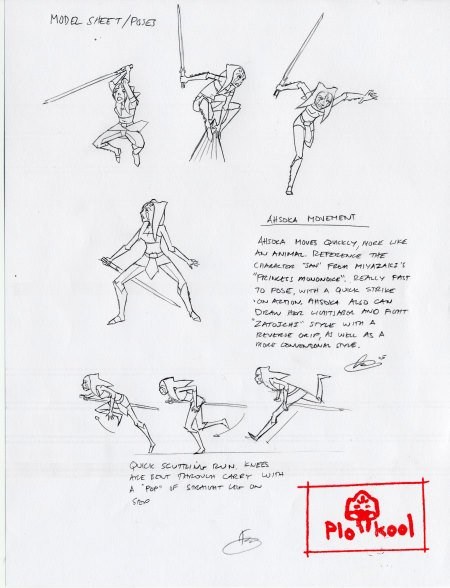 MODEL SHEET/POSES
AHSOKA MOVEMENT
AHSOKA MOVES QUICKLY, MORE LIKE
AN ANIMAL. REFERENCE THE
CHARACTER "SAN" FROM MIYAZAKI'S
"PRINCESS MONONOKE". REALLY FAST
TO POSE, WITH A QUICK STRIKE
ON ACTION. AHSOKA ALSO CAN
DRAW HER LIGHTSABER AND FIGHT
"ZATOICHI" STYLE WITH A
REVERSE GRIP, AS WELL AS A
MORE CONVENTIONAL STYLE.
QUICK SCUTTLING RUN. KNEES
ARE BENT THROUGH CARRY WITH
A "POP" OF STRAIGHT LEG ON
STEP
Plo kool